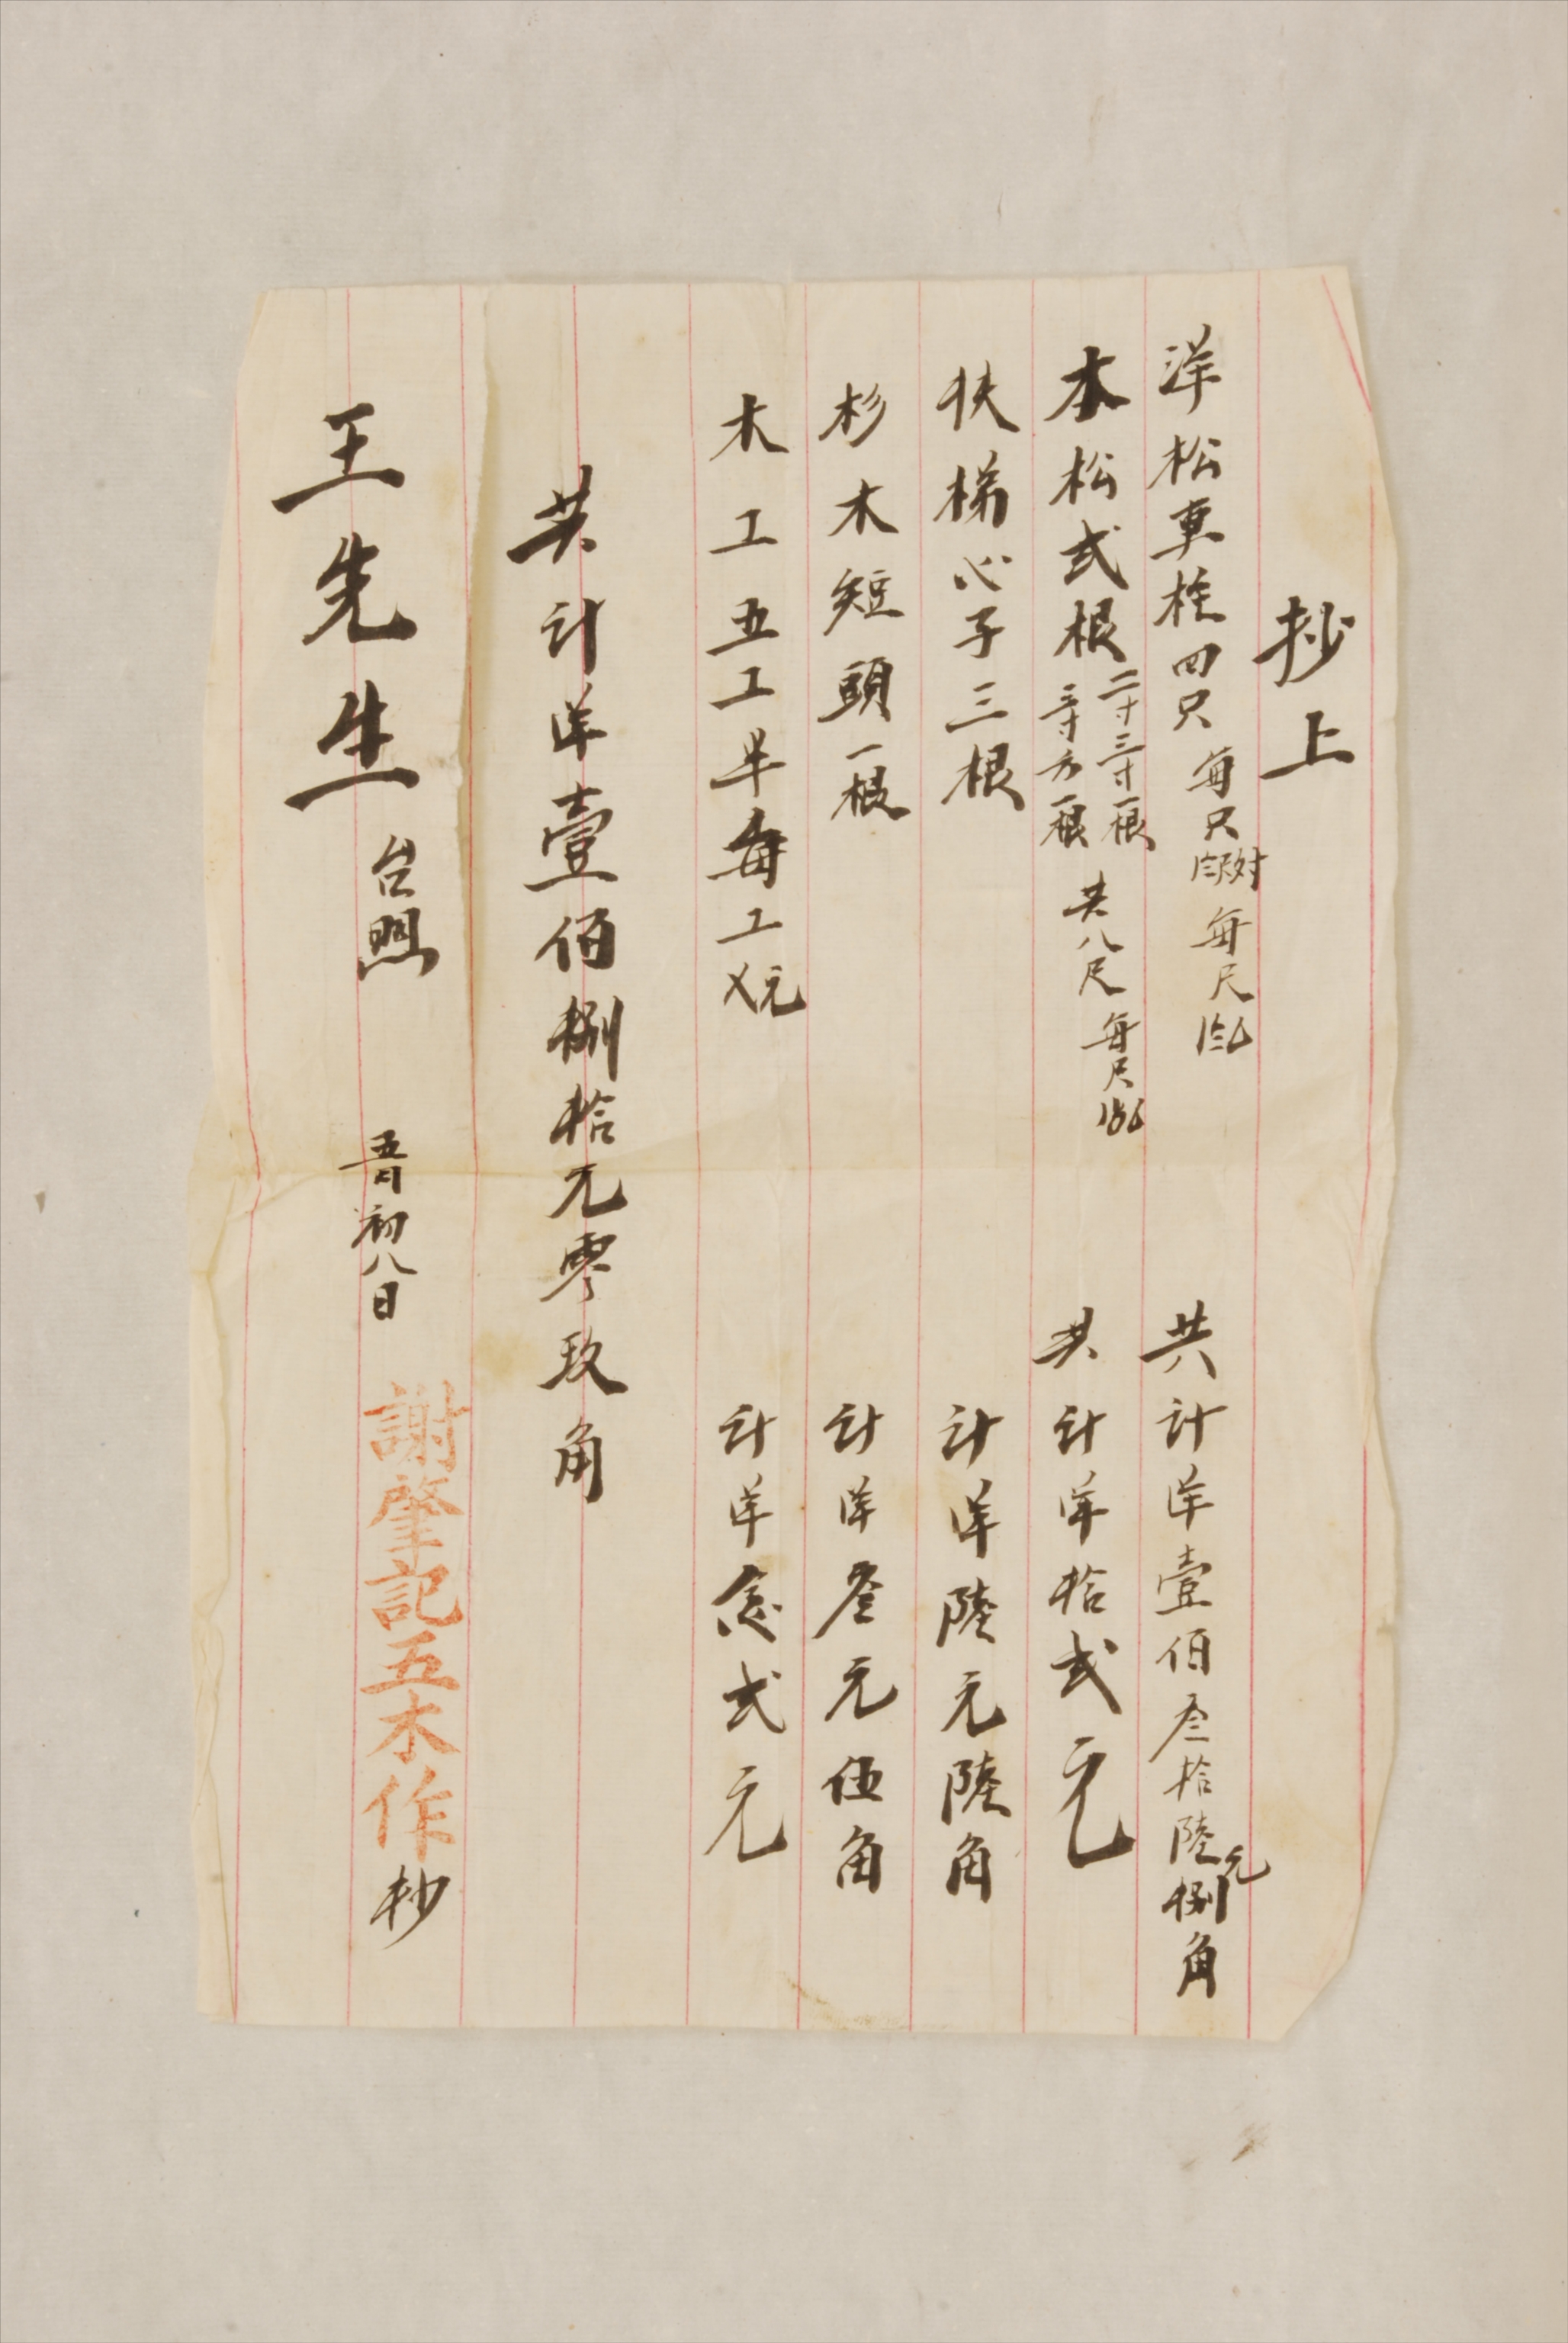 抄上
洋松車柱四只 每只 每尺 共計洋壹佰叁拾陸元捌角
本松弍根 二寸三寸一根 三寸方一根 共八尺 每尺 共計洋拾弍元
扶梯心子三根 計洋陸元陸角
杉木短頭一根 計洋叁元伍角
木工五工半每工〤元 計洋念弍元
共計洋壹佰捌拾元零玖角
王先生 台照
五月初八日 謝肇記五木作 抄